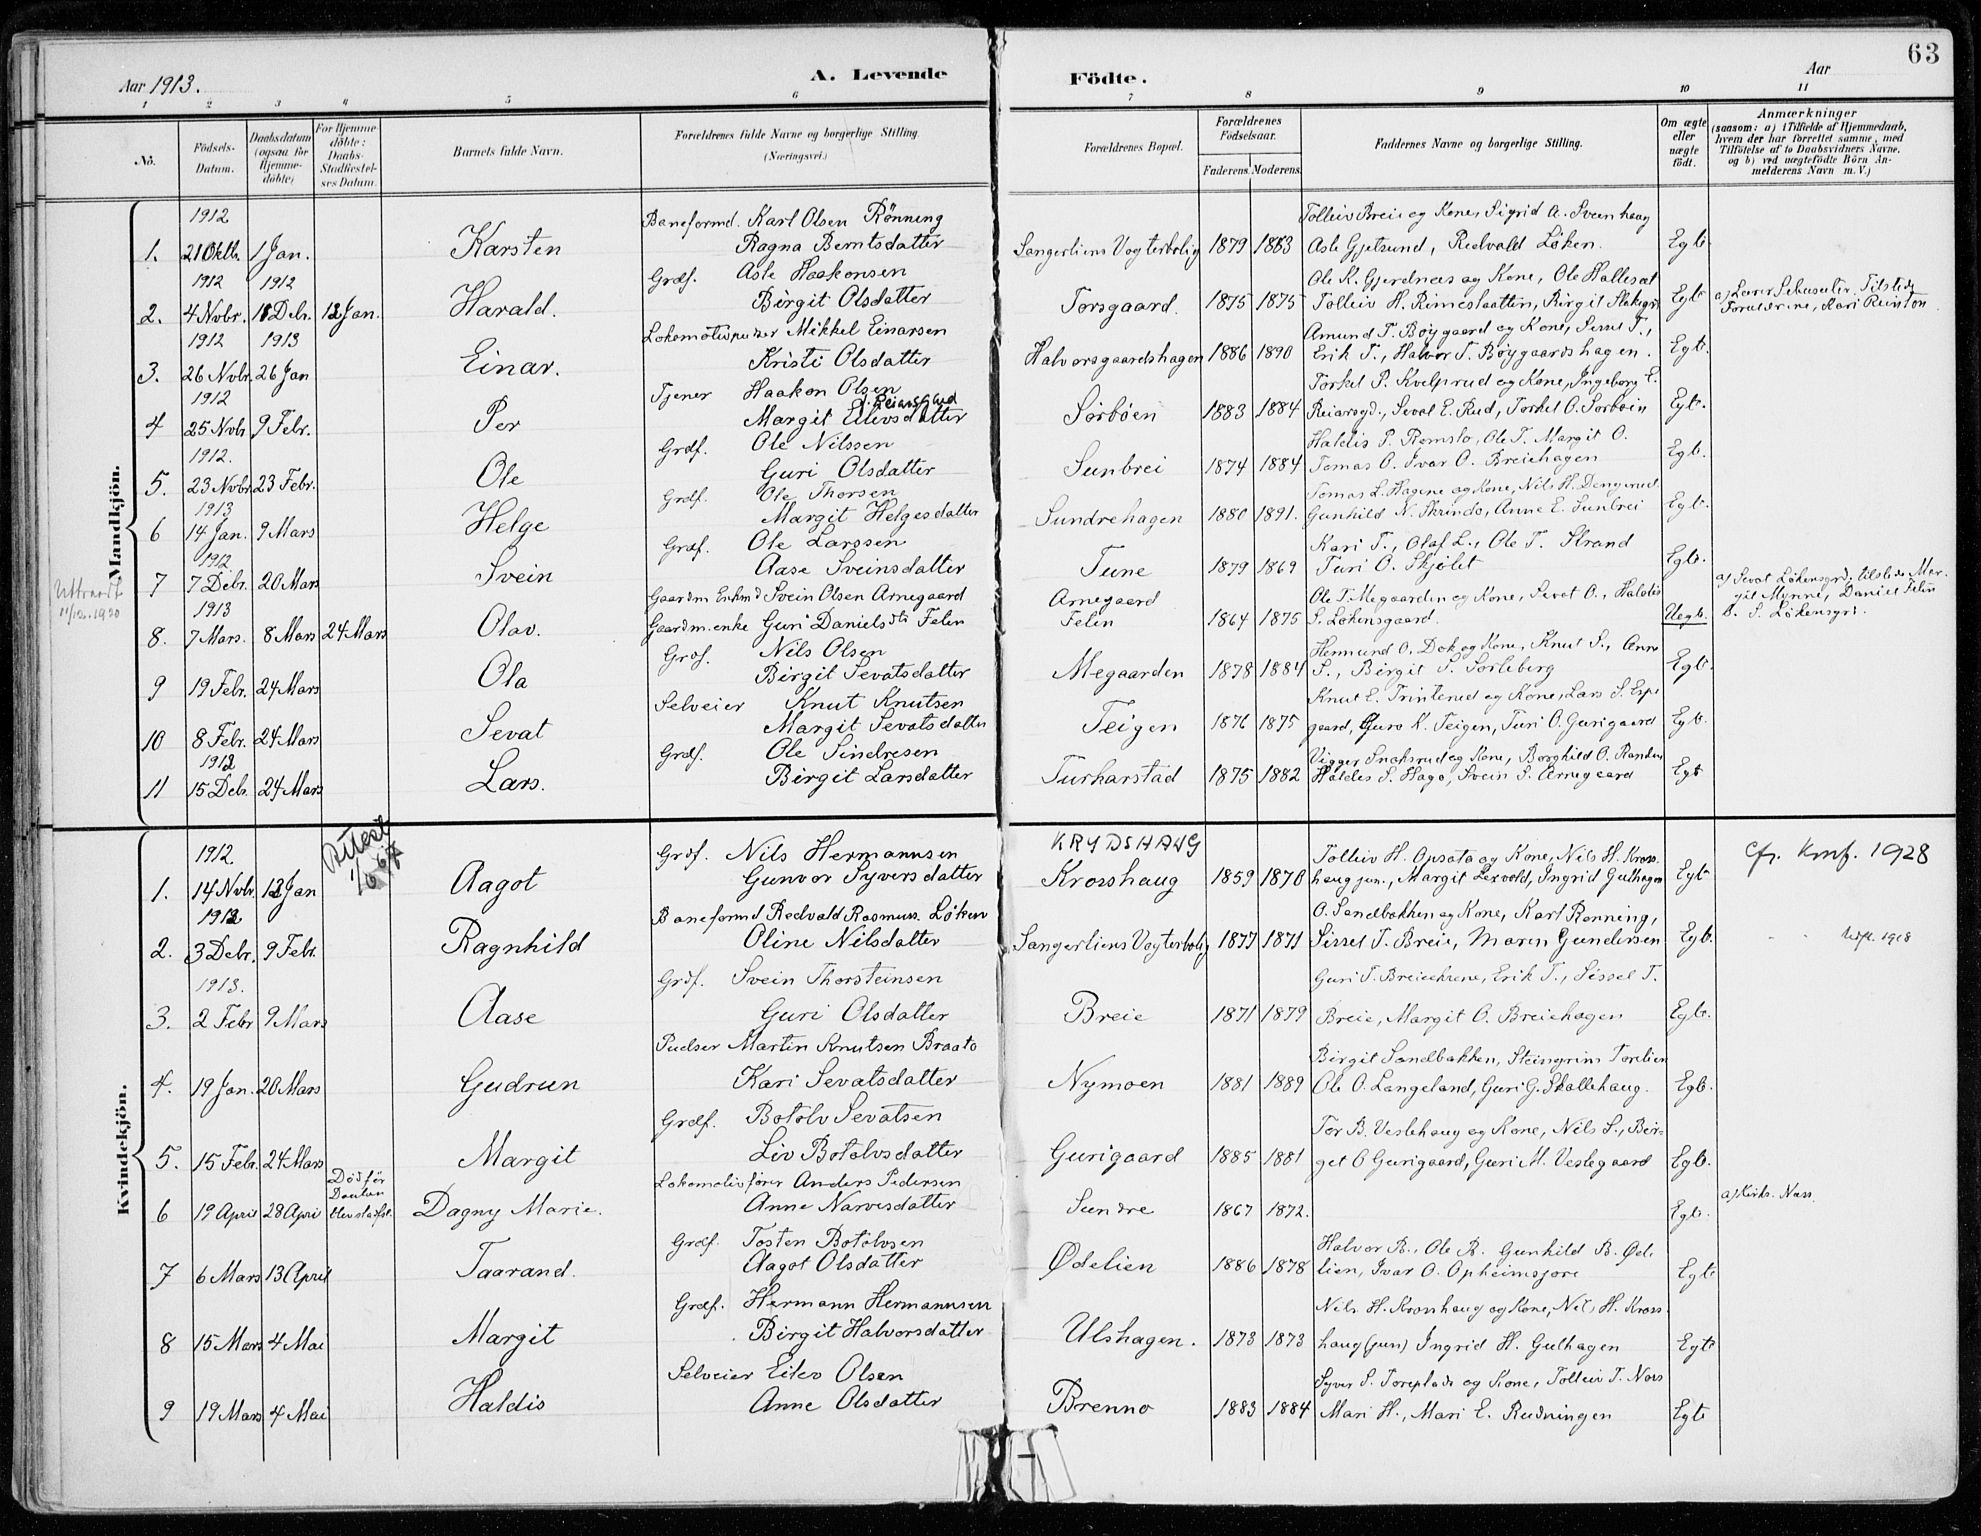 63
Aar 1913.
A. Levende
Födte.
Aar
1 2 3 4 5 6 7 8 9 10 11
No.
Födsels-Datum.
Daabsdatum (ogsaa for Hjemme-döbte)
For Hjemme-döbte: Daabs-Stadfæstel-ses Datum.
Barnets fulde Navn.
Forældrenes fulde Navne og borgerlige Stilling. (Næringsvei.)
Forældrenes Bopæl.
Forældrenes Födselsaar.
Faderens. Moderens.
Faddernes Navne og borgerlige Stilling.
Om ægte eller uægte födt.
Anmærkninger
(saasom: a) i Tilfælde af Hjemmedaab, hvem der har forrettet samme, med Tilföielse af to Daabsvidners Navne, og b) ved uægtefödte Börn An-melderens Navn m. V.)
Mandkjön.
1912 Baneformd. Karl Olsen Rönning Tolleiv Breie og Kone, Sigrid A. Sveenhaug
1. 21 Oktb. 1 Jan. Karsten Ragna Berntsdatter Sangerliens Vogterbolig 1879 1883 Asle Gjetsund, Redvald Löken. Egte
1912 1912 Grdf. Asle Haakonsen Ole K. Gjerdnes og Kone, Ole Hallesat
2. 4 Novbr. 18 Debr. 12 Jan. Harald. Birgit Olsdatter Torsgaard. 1875 1875 Tolleiv H. Rimeslaatten, Birgit Egte
1912 1913 Lokomotivpudser Mikkel Einarsen Amund T. Böygaard og Kone, Sissel T.,
3. 26 Nvbr. 26 Jan Einar. Kristi Olsdatter Halvorsgaardshagen 1886 1890 Erik T., Halvor T. Böygaardshagen. Egte.
1912 Tjener Haakon Olsen Torkel P. Kvelprud og Kone, Ingeborg E.
4 25 Nvbr. 9 Febr. Per Margit Eilevsdatter Reiarsgaard Sörböen 1883 1884 Reiarsgd., Sevat E. Rud, Torkel O. Sörböen Egte.
1912. Grdf. Ole Nilssen Haldis P. Remslo, Ole T. Margit O.
5. 23 Novbr. 23 Febr. Ole Guri Olsdatter Sunbrei 1874 1884 Tomas O. Ivar O. Breiehagen Egte.
1913 Grdf. Ole Thorsen Tomas L. Hagene og Kone, Nils H. Dengerud
6 14 Jan. 9 Mars Helge Margit Helgesdatter Sundrehagen 1880 1891. Gunhild N. Skrindo, Anne E. Sunbrei Egte.
1912 Grdf. Ole Larssen Kari T., Olaf L., Ole T. Strand
7 7 Debr. 20 Mars Svein Aase Sveinsdatter Tune 1879 1869 Turi O. Skjölet Egte.
Uttraadt 11/12.1920
1913 Gaardm. Enkmd Svein Olsen Arnegaard Arnegaard Ole T. Megaarden og Kone, Sevat O., Haldis
8. 7 Mars. 8 Mars 24 Mars Olav. Gaardm. enke Guri Danielsdtr Felen Felen 1864 1875 S. Lökensgaard. Uegte.
a) Sevat Lökensgrd, tilstede Margit Mynne, Daniel Felen
b. S. Lökensgrd.
Grdf. Nils Olsen Hermund O. Dok og Kone, Knut S., Anne
9 19 Febr. 24 Mars Ola Birgit Sevatsdatter Megaarden 1878 1884 S., Birgit S. Sorteberg Egte.
Selveier Knut Knutsen Knut E. Trinterud og Kone, Lars S. Espe
10 8 Febr. 24 Mars Sevat Margit Sevatsdatter Teigen 1876 1875 gaard, Guro K. Teigen, Turi O. Gurigaard Egte.
1912 Grdf. Ole Sindresen Vigger Snaksrud og Kone, Borghild O. Randen
11 15 Debr. 24 Mars Lars. Birgit Larsdatter Turharstad 1875 1882 Haldis S. Hago, Svein S. Arnegaard Egte
Kvindekjön.
Attest 1/6 67
1912. Grdf. Nils Hermannsen KRYDSHAUG Tolleiv H. Opsata og Kone, Nils H. Kross-
1. 14 Novbr. 12 Jan Aagot Gunvor Syversdatter Krosshaug 1859 1870 haug jun., Margit Lexvold, Ingrid Gulhagen Egte
Cfr. Konf. 1928
1912 Baneformd Redvald Rasmus. Löken O. Sandbakken og Kone, Karl Rönning,
2. 3 Debr. 9 Febr. Ragnhild Oline Nilsdatter Sangerliens Vogterbolig 1877 1871 Sissel T. Breie, Maren Gundersen Egte.
1913. Grdf. Svein Thorsteinsen Guri T. Breieekrene, Erik T., Sissel T.
3. 2 Febr 9 Mars Aase Guri Olsdatter Breie 1871 1879 Breie, Margit O. Breiehagen Egte.
Pudser Martin Knutsen Braato Birgit Sandbakken, Steingrim Torelien
4. 19 Jan. 20 Mars Gudrun Kari Sevatsdatter Nymoen 1881 1889 Ole O. Langeland, Guri G. Skallehaug. Egte.
Grdf. Botolv Sevatsen Tor B. Veslehaug og Kone, Nils S., Bir-
5. 15 Febr. 24 Mars Margit Liv Botolvsdatter Gurigaard 1885 1881 get O Gurigaard, Guri M. Veslegaard Egte.
Död för Daaben blev stadfst. Lokomotivförer Anders Pedersen
6 19 April 28 April Dagny Marie. Anne Narvesdatter Sundre 1867 1872. Egte.
Grdf. Tosten Botolvsen Halvor B., Ole B. Gunhild B. Öde
7 6 Mars 13 April Taarand. Aagot Olsdatter Ødelien 1886 1878 lien, Ivar O. Opheimsjore Egte
Grdf. Hermann Hermannsen Nils H. Krosshaug og Kone, Nils H. Kross
8 15 Mars 4 Mai Margit Birgit Halvorsdatter Ulshagen. 1873 1873 haug (jun) Ingrid H. Gulhagen Egte
Selveier Eilev Olsen Syver S. Toreplads og Kone, Tolleiv T. Nors
9 19 Mars 4 Mai Haldis Anne Olsdatter Brenno 1883 1884 Mari H., Mari E. Rudningen Egte